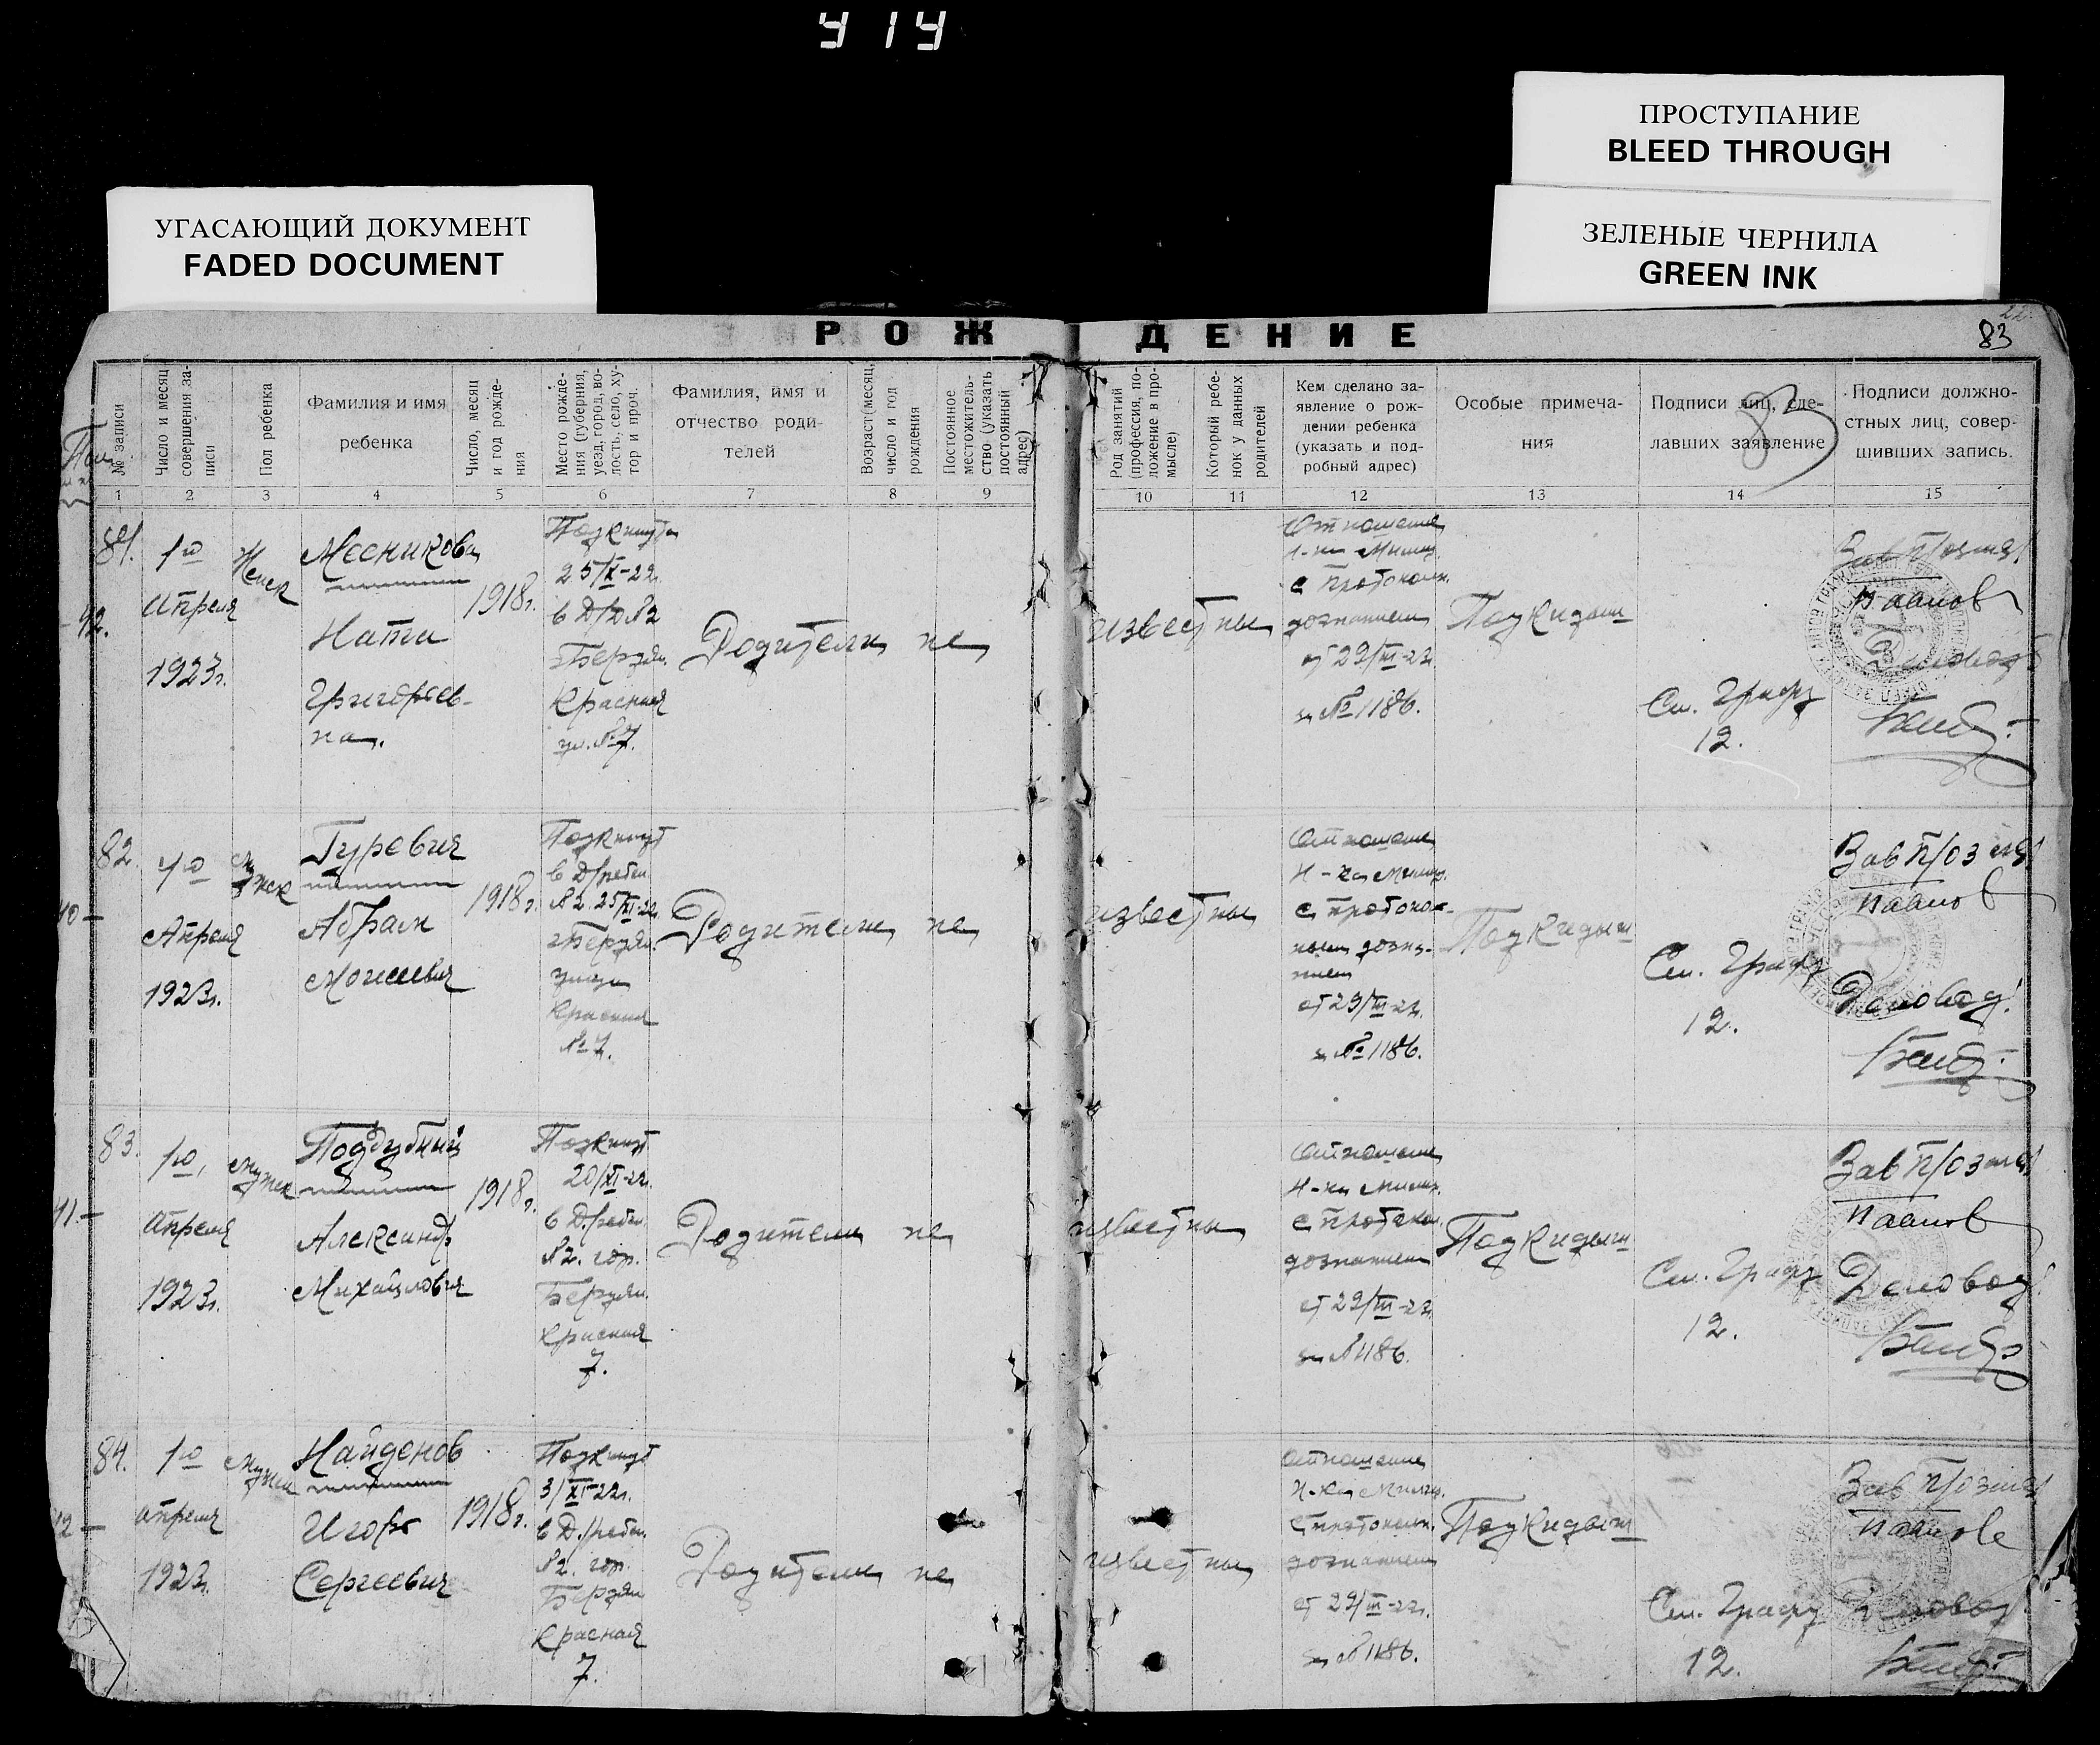 414
ПРОСТУПАНИЕ
BLEED THROUGH
УГАСАЮЩИЙ ДОКУМЕНТ
FADED DOCUMENT
ЗЕЛЕНЫЕ ЧЕРНИЛА
GREEN INK
РОЖДЕНИЕ
83
№ записи
Число и месяц
совершения за-
писи
Пол ребенка
Фамилия и имя
ребенка
Число, месяц
и год рожде-
ния
Место рожде-
ния (губерния,
уезд, город, во-
лость, село, ху-
тор и проч.
Фамилия, имя и
отчество роди-
телей
Возраст (месяц,
число и год
рождения
Постоянное
местожитель-
ство (указать
постоянный
адрес)
Род занятий
(профессия, по-
ложение в про-
мысле)
Который ребе-
нок у данных
родителей
Кем сделано за-
явление о рож-
дении ребенка
(указать и под-
робный адрес)
Особые примеча-
ния
Подписи лиц, сде-
лавших заявление
Подписи должно-
стных лиц, совер-
шивших запись.
1 2 3 4 5 6 7 8 9 10 11 12 13 14 15
81.
1го
Апреля
1923г.
Женск
Мясникова
Ната
Григорьев-
на.
1918г.
Подкинута
25/X-22г.
в Д/Д №2
г. Бердян.
Красная
ул. №7.
Родители не известны
Отношение
с протокол.
дознанием
от 29/III-23
за № 1186.
Подкидыш
См. Графу
12.
Зав п/отд
82.
4го
Апреля
1923г.
Мужск
Гуревич
Абрам
Моисеевич
1918г.
Подкинут
в Д/ребен.
№2 25/XI-22
г. Бердян.
улица
Красная
№7.
Родители не известны
Отношение
Н-ка Милиц.
с протоко-
лом дозна-
нием
от 29/III-23.
за № 1186.
Подкидыш
См. Графу
12.
Деловод.
83.
1го,
Апреля
1923г.
Мужск
Поддубный
Александр
Михайлович
1918г.
Подкинут
20/XI-22г.
в Д.ребен.
№2. гор.
Бердян.
Красная
7.
Родители не известны
Отношение
Н-ка Милиц.
с протокол.
дознанием
от 29/III-23
за № 1186.
Подкидыш
См. Графу
12.
Деловод.
84.
1го
Апреля
1923г.
Мужск
Найденов
Игорь
Сергеевич
1918г.
Подкинут
3/XI-22г.
в Д.ребен.
№2. гор.
Бердян
Красная
7.
Родители не известны
Отношение
Н-ка Милиц.
с протокол.
дознанием
от 29/III-23.
за № 1186.
Подкидыш
См. Графу
12.
Деловод